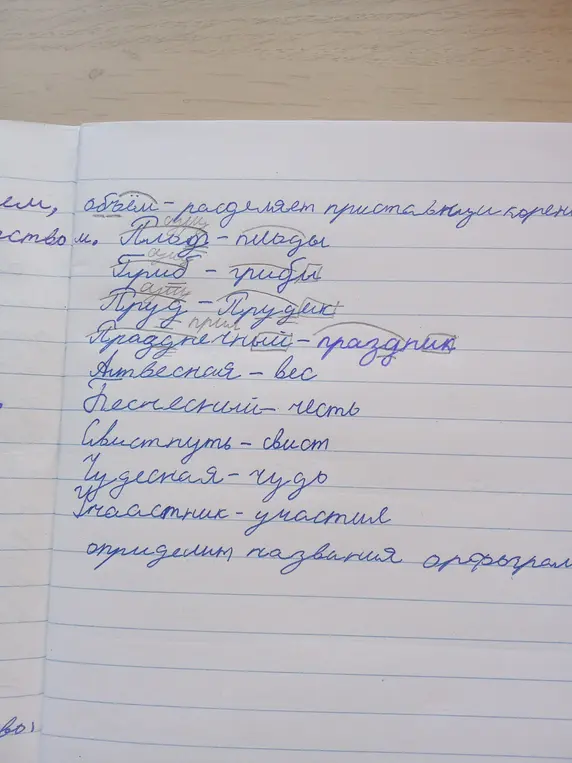 ем, объём – расделяет приставку и корень
ством. Плод – плоды
Гриб – грибы
Пруд – Прудик
прил
Празднечный – праздник
Атвесная – вес
Бесчесний – честь
Свистнуть – свист
Чудесная – чудо
Учаастник – участия
определим названия орфограм